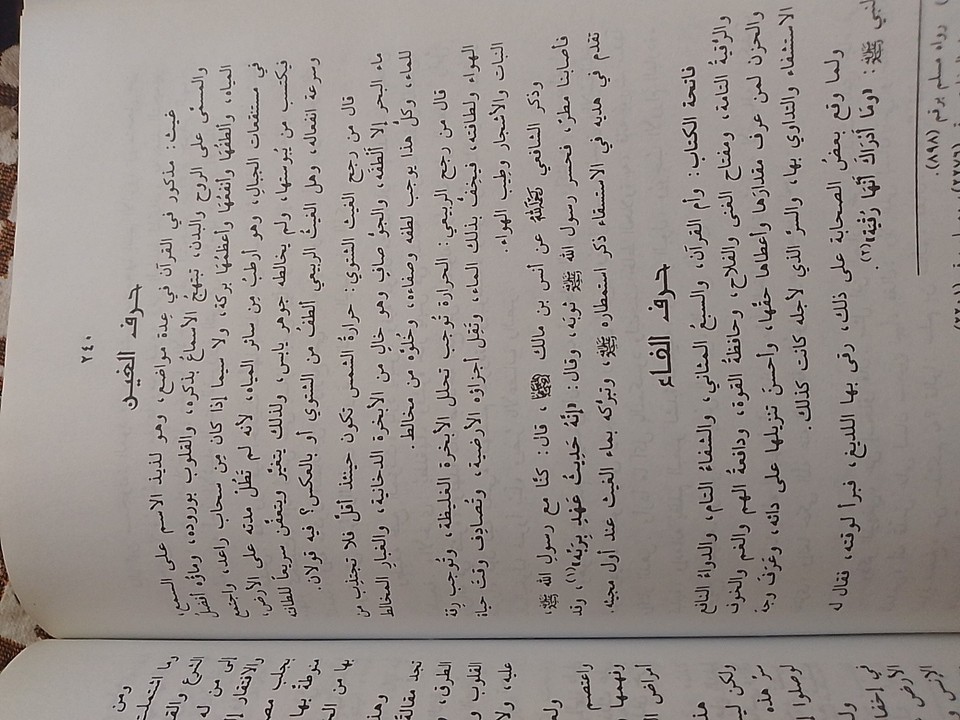 ٢٤٠
حرف الغين
غيث: مذكور في القرآن في عِدة مواضع، وهو لذيذ الاسم على السمع،
والمسمَّى على الروح والبدن، تبتهجُ الأسماعُ بذكره، والقلوب بوروده، وماؤه أفضلُ
المياه، وألطفُها وأنفعُها وأعظمُها بركة، ولا سيما إذا كان مِن سحاب راعد، واجتمع
في مستنقعات الجبال، وهو أرطبُ مِن سائر المياه، لأنه لم تَطُلْ مدته على الأرض،
فيكتسب من يُبوستها، ولم يخالطه جوهر يابس، ولذلك يتغيَّر ويتعفَّن سريعاً للطافته
وسرعة انفعاله، وهل الغيثُ الربيعي ألطفُ من الشتوي أو بالعكس؟ فيه قولان.
قال من رجح الغيث الشتوي: حرارةُ الشمس تكون حينئذ أقلَّ فلا تجتذِب من
ماء البحر إلا ألطفَه، والجوُّ صافٍ وهو خالٍ من الأبخرة الدخانية، والغبار المخالط
للماء، وكلُّ هذا يوجب لطفه وصفاءه، وخُلوَّه من مخالط.
قال من رجح الربيعي: الحرارة تُوجب تحلل الأبخرة الغليظة، وتُوجب رِقة
الهواء ولطافته، فيخِفُّ بذلك الماء، وتَقِل أجزاؤه الأرضية، وتُصادِف وقتَ حياة
النبات والأشجار وطِيب الهواء.
وذكر الشافعي رحمه الله عن أنس بن مالك رضي الله عنه، قال: كنَّا مع رسول الله ﷺ،
فأصابنا مطرٌ، فحسر رسول الله ﷺ ثوبَه، وقال: «إنَّهُ حَدِيثُ عَهْدٍ بِرَبِّه»(١)، وقد
تقدم في هديه في الاستسقاء ذكر استمطاره ﷺ، وتبركه بماء الغيث عند أول مجيئه.
حرف الفاء
فاتحة الكتاب: وأم القرآن، والسبعُ المثاني، والشفاءُ التام، والدواءُ النافع
والرُّقيةُ التامة، ومفتاح الغنى والفلاح، وحافظةُ القوة، ودافعةُ الهم والغم والخوف
والحزن لمن عرف مقدارَها وأعطاها حقَّها، وأحسنَ تنزيلها على دائه، وعَرَفَ وجهَ
الاستشفاء والتداوي بها، والسرَّ الذي لأجله كانت كذلك.
ولما وقع بعضُ الصحابة على ذلك، رقى بها اللديغ، فبرأ لوقته، فقال له
النبي ﷺ: «وَمَا أدْرَاكَ أنَّهَا رُقْيَة»(٢).
رواه مسلم برقم (٨٩٨).